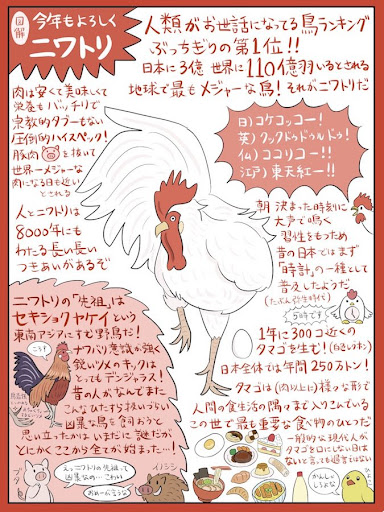 図解
今年もよろしく
ニワトリ
人類がお世話になってる鳥ランキング
ぶっちぎりの第1位!!
日本に3億 世界に110億羽いるとされる
地球で最もメジャーな鳥!それがニワトリだ
肉は安くて美味しくて
栄養もバッチリで
宗教的タブーもない
圧倒的ハイスペック!
豚肉を抜いて
世界一メジャーな
肉になる日も近い
とされる
人とニワトリは
8000年にも
わたる長い長い
つきあいがあるぞ
日)コケコッコー!
英)クックドゥドゥルドゥ!
仏)ココリコー!!
江戸)東天紅ー!!
朝 決まった時刻に
大声で鳴く
習性をもつため
昔の日本ではまず
「時計」の一種として
普及したようだ
(たぶん弥生時代)
5時です
ニワトリの「先祖」は
セキショクヤケイという
東南アジアにすむ野鳥だ!
こうっ
ナワバリ意識が強く
鋭いツメのキックは
とってもデンジャラス!
昔の人がなんでまた
こんなひたすら扱いづらい
凶暴な鳥を飼おうと
思い立ったかはいまだに謎だが
とにかくここから全てが始まった…!
ブタ
えっニワトリの先祖って
凶暴なの…こわい
イノシシ
おめーが言うな
1年に300コ近く
タマゴを生む!(白色レグホン)
日本全体では年間250万トン!
タマゴは(肉以上に)様々な形で
人間の食生活の隅々まで入りこんでいる
この世で最も重要な食べ物のひとつだ
一般的な現代人が
タマゴを口にしない日は
ないと言っても過言ではない
かんしゃ
しろよな
ひよこ